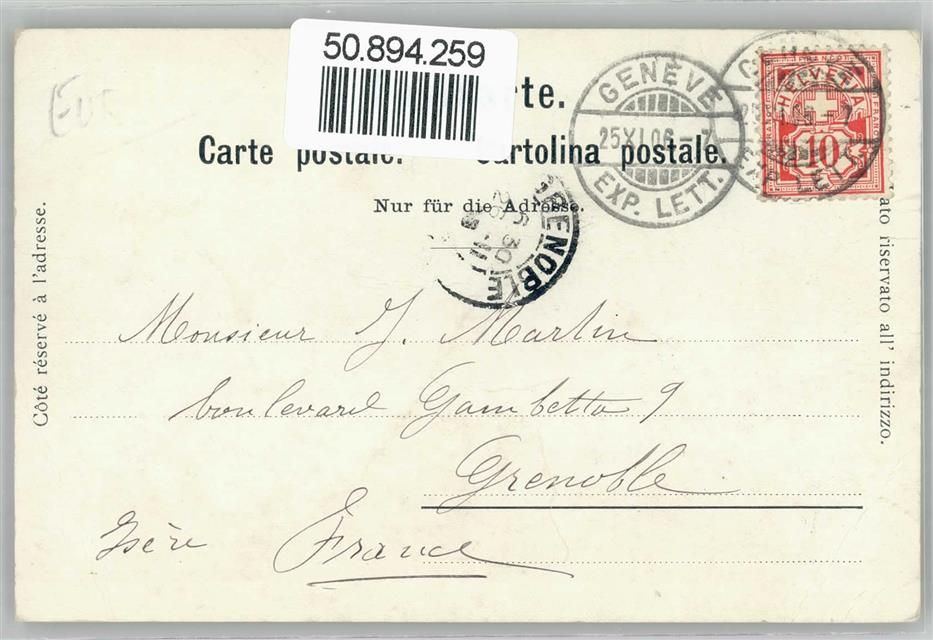 50.894.259
rte.
Carte postale. Cartolina postale.
Nur für die Adresse.
Côté réservé à l'adresse.
ato riservato all' indirizzo.
GENÈVE
25 XI 06 - 7
EXP. LETT.
HELVETIA
FRANCO
10
GRENOBLE
6 30
26 - 11
Monsieur J. Martin
boulevard Gambetta 9
Grenoble
Isère France